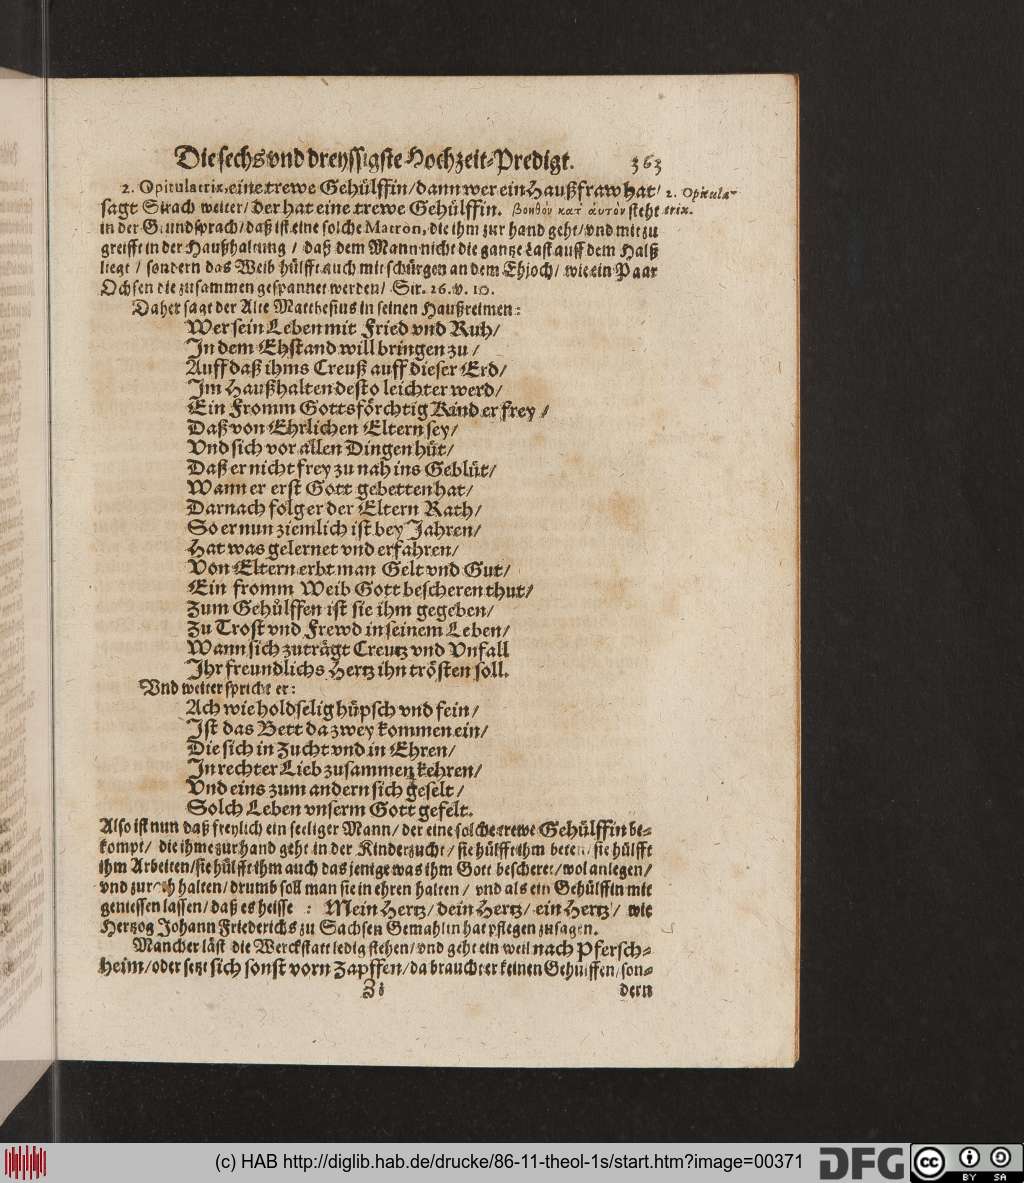 Die sechs vnd dreyssigste Hochzeit-Predigt. 363
2. Opitulatrix, eine trewe Gehülffin/ dann wer ein Haußfraw hat/
2. Opitula-
trix.
sagt Sirach weiter/ der hat eine trewe Gehülffin. βοηθὸν κατ᾽ ἀυτὸν steht
in der Grundsprach/ daß ist eine solche Matron, die ihm zur hand geht/ vnd mit zu
greifft in der Haußhaltung / daß dem Mann nicht die gantze Last auff dem Halß
liegt / sondern das Weib hülfft auch mit schürgen an dem Ehjoch/ wie ein Paar
Ochsen die zusammen gespannet werden/ Sir. 26. v. 10.
Daher sagt der Alte Matthesius in seinen Haußreimen:
Wer sein Leben mit Fried vnd Ruh/
In dem Ehstand will bringen zu /
Auff daß ihms Creuß auff dieser Erd/
Im Haußhalten desto leichter werd/
Ein Fromm Gottsförchtig Kind er frey /
Daß von Ehrlichen Eltern sey/
Vnd sich vor allen Dingen hüt/
Daß er nicht frey zu nah ins Geblüt/
Wann er erst Gott gebetten hat/
Darnach folg er der Eltern Rath/
So er nun ziemlich ist bey Jahren/
Hat was gelernet vnd erfahren/
Von Eltern erbt man Gelt vnd Gut/
Ein fromm Weib Gott bescheren thut/
Zum Gehülffen ist sie ihm gegeben/
Zu Trost vnd Frewd in seinem Leben/
Wann sich zuträgt Creutz vnd Vnfall
Ihr freundlichs Hertz ihn trösten soll.
Vnd weiter spricht er:
Ach wie holdselig hüpsch vnd fein/
Ist das Bett da zwey kommen ein/
Die sich in Zucht vnd in Ehren/
In rechter Lieb zusammen kehren/
Vnd eins zum andern sich geselt /
Solch Leben vnserm Gott gefelt.
Also ist nun daß freylich ein seeliger Mann/ der eine solche trewe Gehülffin be-
kompt/ die ihme zur hand geht in der Kinderzucht/ sie hülfft ihm beten/ sie hülfft
ihm Arbeiten/ sie hülfft ihm auch das jenige was ihm Gott bescheret/ wol anlegen/
vnd zur halten/ drumb soll man sie in ehren halten / vnd als ein Gehülffin mit
geniessen lassen/ daß es heisse : Mein Hertz/ dein Hertz/ ein Hertz/ wie
Hertzog Johann Friederichs zu Sachsen Gemahlin hat pflegen zusagen.
Mancher läst die Werckstatt ledig stehen/ vnd geht ein weil nach Pfersch-
heim/ oder setzt sich sonst vorn Zapffen/ da braucht er keinen Gehülffen/ son-
Zz
dern
(c) HAB http://diglib.hab.de/drucke/86-11-theol-1s/start.htm?image=00371
DFG
cc
BY SA